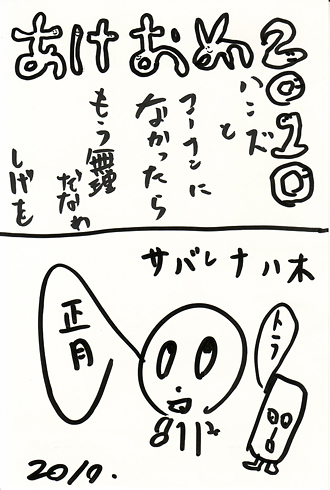 あけおめ2010
ハンズ
と
アーフンに
なかったら
もう無理
だなわ
しげを
サバレナ八木
正月
トラ
2010.